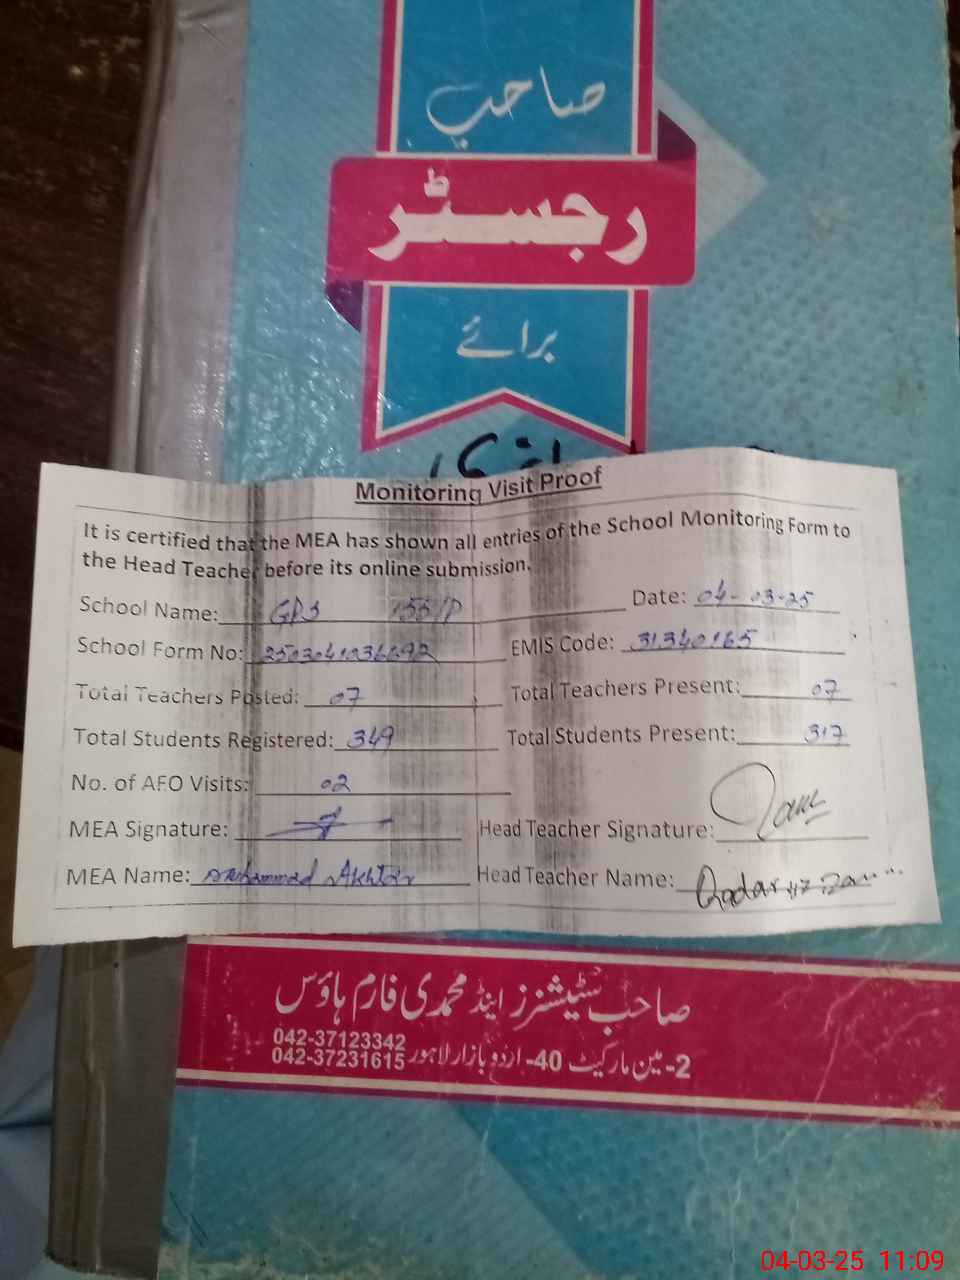 صاحب
رجسٹر
برائے
Monitoring Visit Proof
It is certified that the MEA has shown all entries of the School Monitoring Form to
the Head Teacher before its online submission.
School Name: GPS 155/P Date: 04-03-25
School Form No: EMIS Code: 31340165
Total Teachers Posted: 07 Total Teachers Present: 07
Total Students Registered: 349 Total Students Present: 317
No. of AEO Visits: 02
MEA Signature: Head Teacher Signature:
MEA Name: Muhammad Akhtar Head Teacher Name:
صاحب سٹیشنرز اینڈ محمدی فارم ہاؤس
042-37123342
042-37231615 2-مین مارکیٹ 40-اردو بازار لاہور
04-03-25 11:09